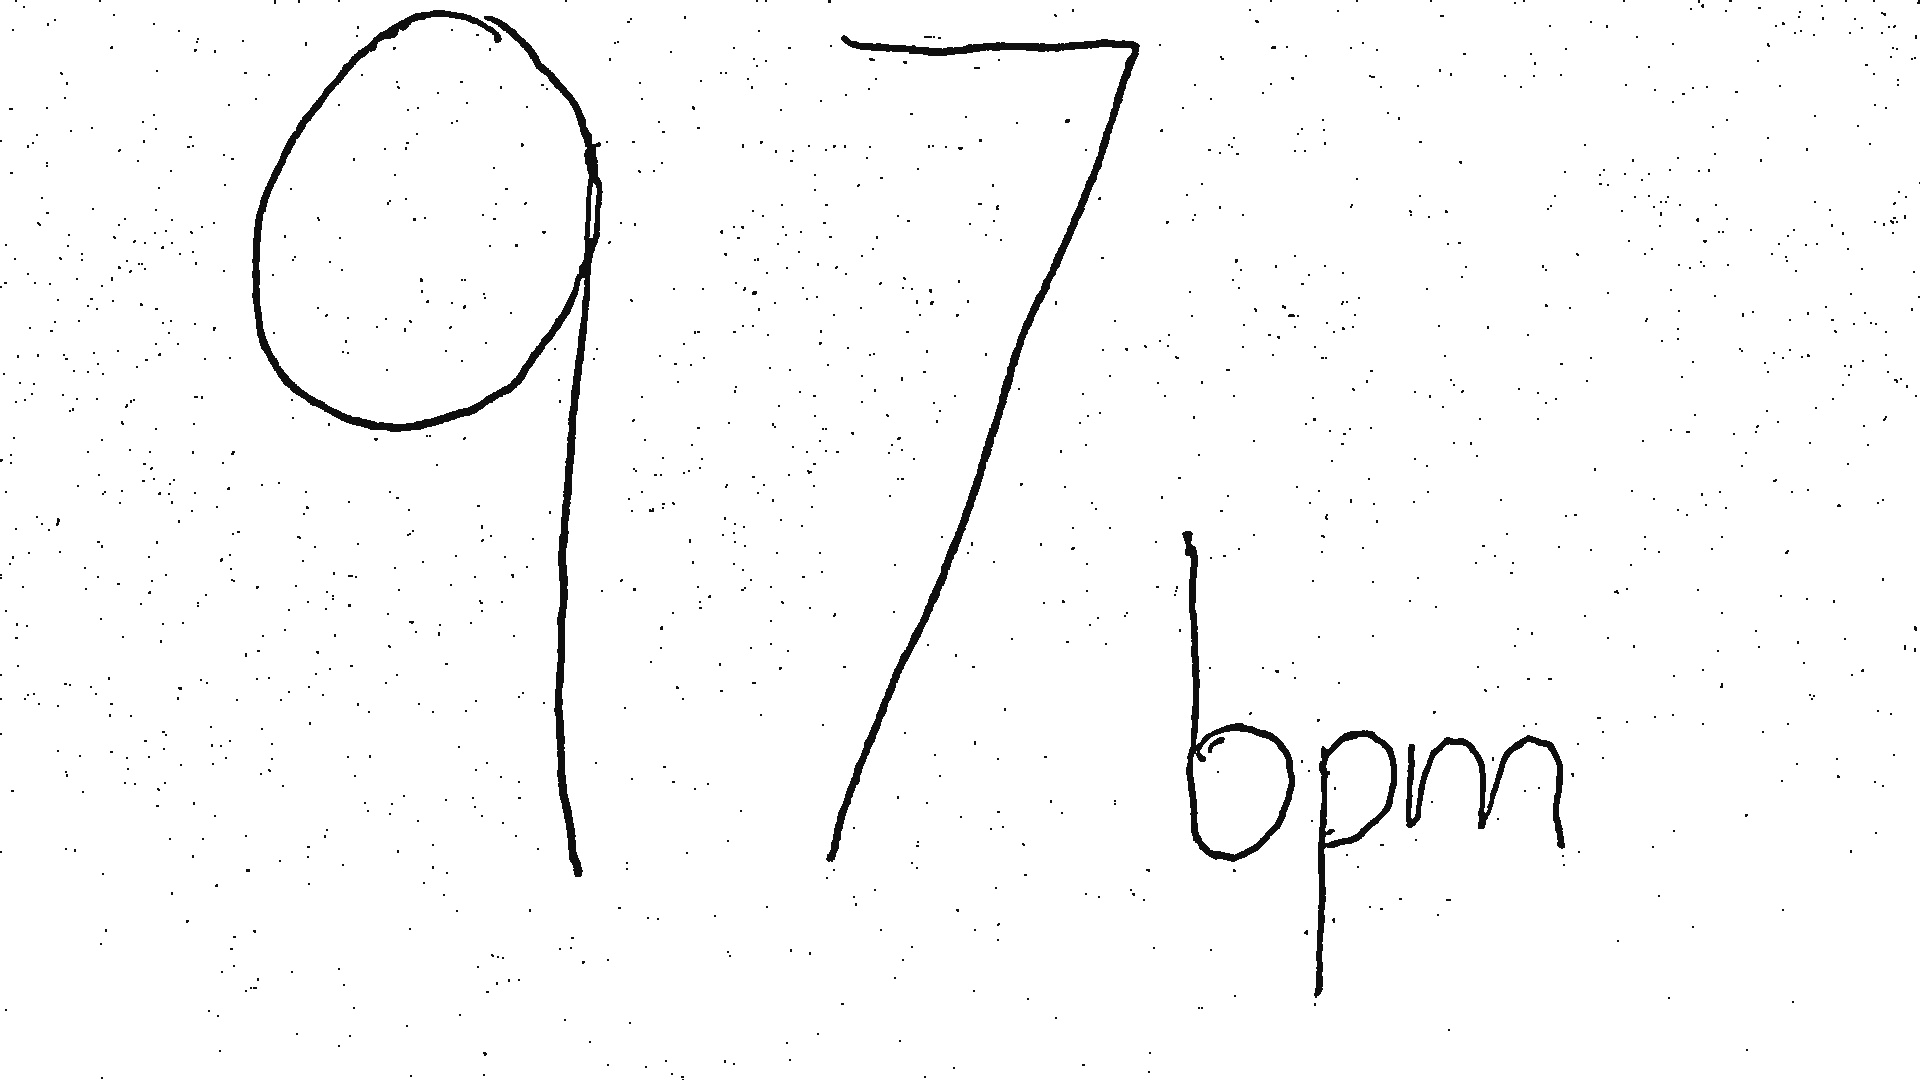 97 bpm